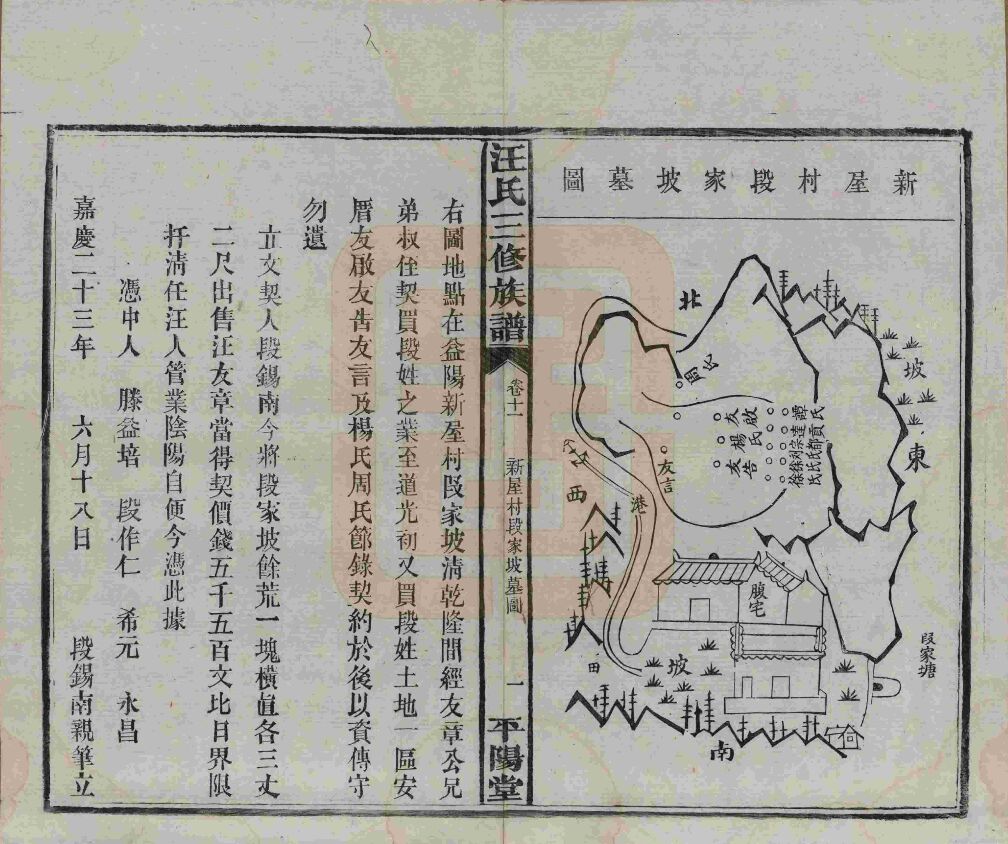 新屋村段家坡墓圖
北
坡
東
周氏
友啟
楊氏
友告
譚貢氏
達都氏
宗氏
刘氏
徐氏
徐氏
友言
港
西
腹宅
田
坡
南
段家塘
汪氏三修族譜
卷十一
新屋村段家坡墓圖
一
平陽堂
右圖地點在益陽新屋村段家坡清乾隆間經友章公兄
弟叔侄契買段姓之業至道光初又買段姓土地一區安
厝友啟友告友言及楊氏周氏節錄契約於後以資傳守
勿遺
立文契人段錫南今將段家坡餘荒一塊橫直各三丈
二尺出售汪友章當得契價錢五千五百文比日界限
扦清任汪人管業陰陽自便今憑此據
憑中人 滕益培 段作仁 希元 永昌
嘉慶二十三年 六月十八日 段錫南親筆立